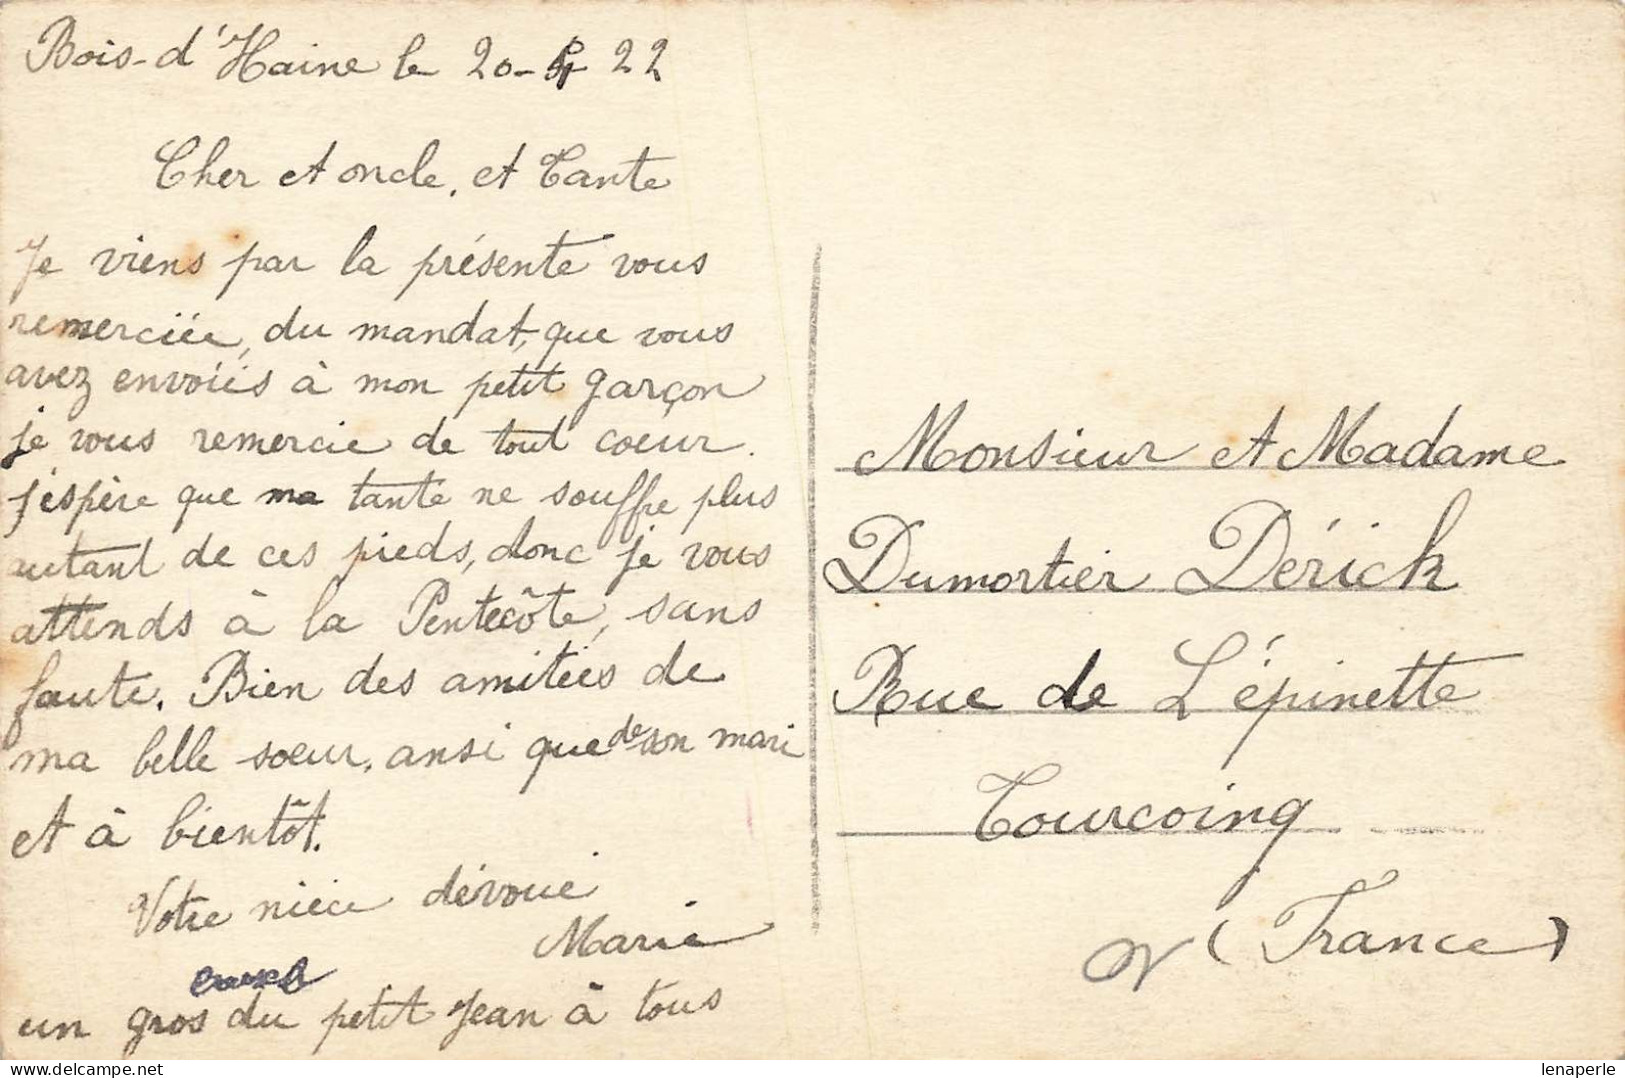 Bois-d'Haine le 20-4 22
Cher et oncle, et Tante
Je viens par la présente vous
remerciée, du mandat, que vous
avez envoiés à mon petit garçon
je vous remercie de tout coeur.
j'espère que ma tante ne souffre plus
autant de ces pieds, donc je vous
attends à la Pentecôte, sans
faute. Bien des amitiés de
ma belle soeur, ansi que de son mari
et à bientôt.
Votre nièce dévoué
Marie
un gros du petit Jean à tous
Monsieur et Madame
Dumortier Dérick
Rue de L'épinette
Tourcoing
(France)
lenaperle